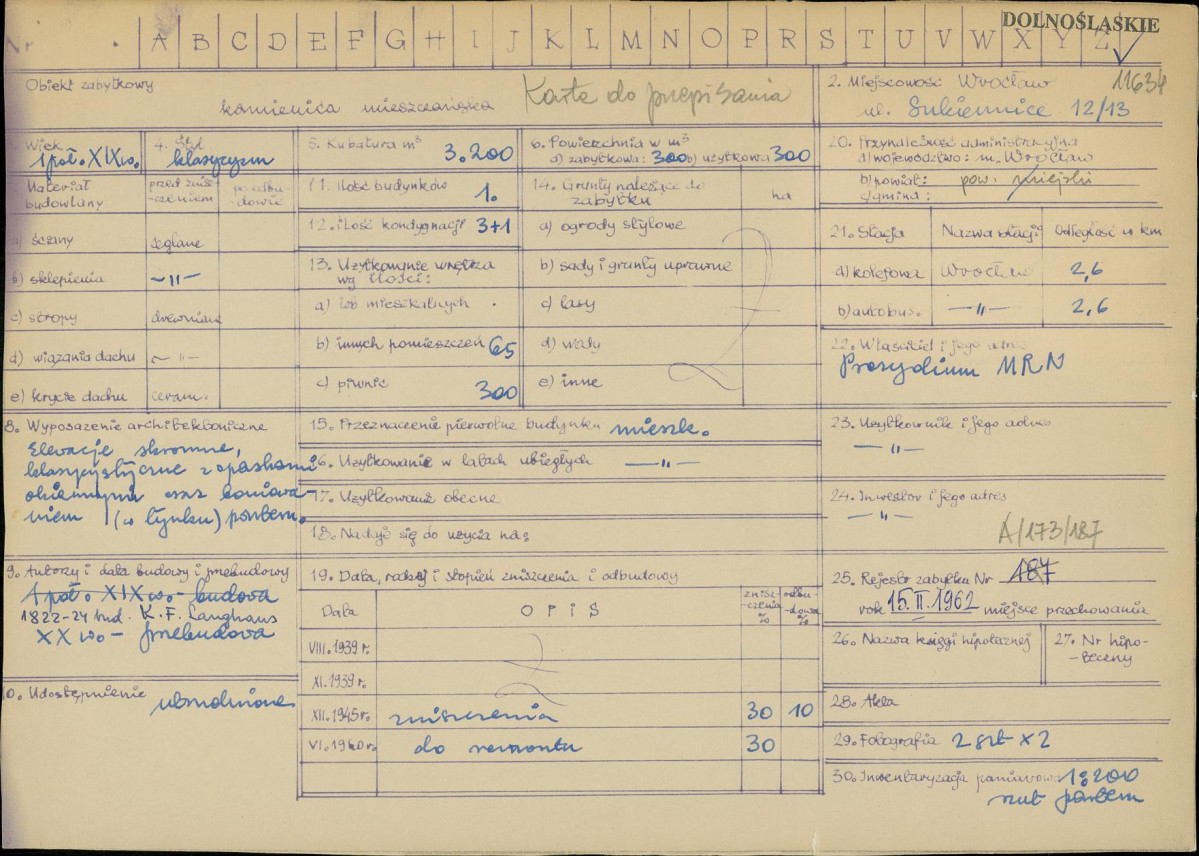 DOLNOŚLĄSKIE
Nr A B C D E F G H I J K L M N O P R S T U V W X Y Z
11634
Obiekt zabytkowy
kamienica mieszczańska
Karta do przepisania
2. Miejscowość Wrocław
ul. Sukiennice 12/13
Wiek
1 poł. XIX w.
4. Styl
klasycyzm
5. Kubatura m³
3.200
6. Powierzchnia w m³
a) zabytkowa: 300 b) użytkowa 300
20. Przynależność administracyjna
a) województwo: m. Wrocław
b) powiat: pow. miejski
c) gmina:
Materiał budowlany
przed znisz-
-czeniem
po odbu-
-dowie
a) ściany ceglane
b) sklepienia -"-
c) stropy drewniane
d) wiązania dachu -"-
e) krycie dachu ceram.
11. Ilość budynków 1.
12. Ilość kondygnacji 3+1
13. Użytkowanie wnętrza
wg ilości:
a) izb mieszkalnych
b) innych pomieszczeń 65
c) piwnic 300
14. Grunty należące do
zabytku
ha
a) ogrody stylowe
b) sady i grunty uprawne
c) lasy
d) wody
e) inne
21. Stacja Nazwa stacji Odległość w km
a) kolejowa Wrocław 2,6
b) autobus. -"- 2,6
22. Właściciel i jego adres
Prezydium MRN
8. Wyposażenie architektoniczne
Elewacje skromne,
klasycystyczne z opaskami
okiennymi oraz boniowa-
niem (w tynku) parteru.
15. Przeznaczenie pierwotne budynku mieszk.
16. Użytkowanie w latach ubiegłych -"-
17. Użytkowanie obecne
18. Nadaje się do użycia na:
23. Użytkownik i jego adres
-"-
24. Inwestor i jego adres
-"-
A/173/187
9. Autorzy i data budowy i przebudowy
1 poł. XIX w. - budowa
1822-24 bud. K. F. Langhans
XX w. - przebudowa
19. Data, rodzaj i stopień zniszczenia i odbudowy
Data OPIS znisz-
-czenia
% odbu-
-dowa
%
VIII.1939 r.
XI.1939 r.
XII.1945 r. zniszczenia 30 10
VI.1960 r. do remontu 30
25. Rejestr zabytku Nr 187
rok 15.II.1962 miejsce przechowania
26. Nazwa księgi hipotecznej
27. Nr hipo-
-teczny
10. Udostępnienie
28. Akta
29. Fotografia 2 szt x 2
30. Inwentaryzacja pomiarowa 1:200
rzut parteru